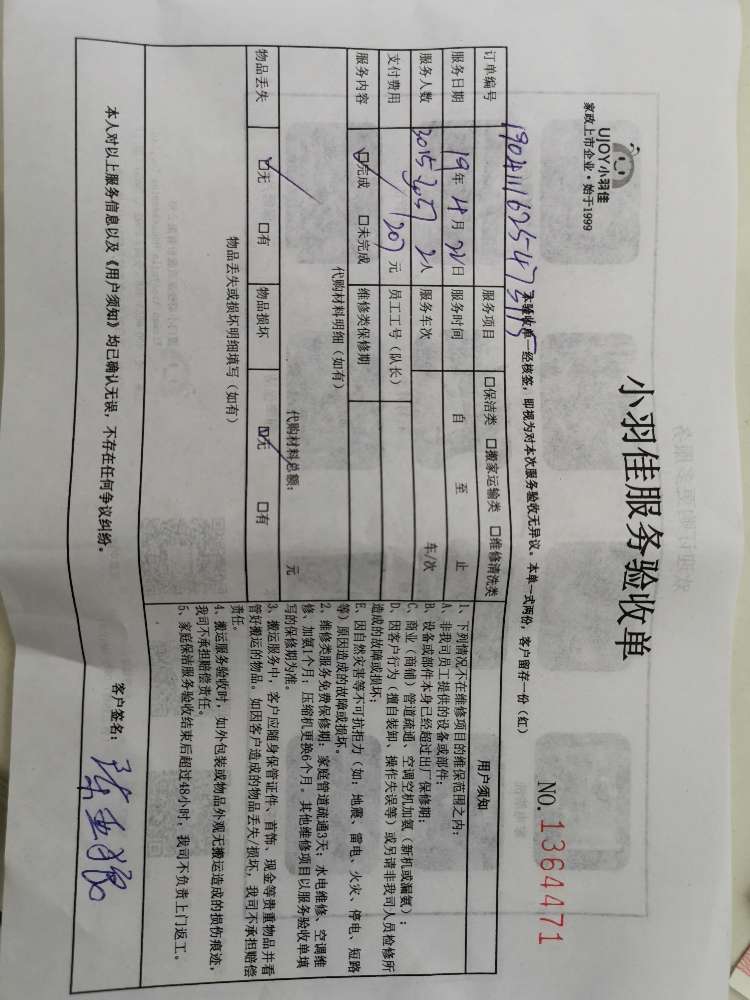 UJOY小羽佳
家政上市企业·始于1999
小羽佳服务验收单
NO.1364471
本验收单一经核签，即视为对本次服务验收无异议。本单一式两份，客户留存一份（红）
订单编号 服务项目 口保洁类 口搬家运输类 口维修清洗类
服务日期 19年4月22日 服务时间 自 至 止
服务人数 2人 服务车次 车/次
支付费用 元 员工工号（队长）
服务内容 口完成 口未完成 维修类保修期
代购材料明细（如有）
代购材料总额： 元
物品丢失 口无 口有 物品损坏 口无 口有
物品丢失或损坏明细填写（如有）
用户须知
1、下列情况不在维修项目的维保范围之内：
A、非我司员工提供的设备或部件；
B、设备或部件本身已经超过出厂保修期；
C、商业（商铺）管道疏通、空调空机加氨（新机或漏氨）；
D、因客户行为（擅自装卸、操作失误等）或另请非我司人员检修所
造成的故障或损坏；
E、因自然灾害等不可抗拒力（如：地震、雷电、火灾、停电、短路
等）原因造成的故障或损坏。
2、维修类服务免费保修期：家庭管道疏通3天；水电维修、空调维
修、加氨1个月；压缩机更换6个月。其他维修项目以服务验收单填
写的保修期为准。
3、搬运服务中，客户应随身保管证件、首饰、现金等贵重物品并看
管好搬运的物品。如因客户造成的物品丢失/损坏，我司不承担赔偿
责任。
4、搬运服务验收时，如外包装或物品外观无搬运造成的损伤痕迹，
我司不承担赔偿责任。
5、家庭保洁服务验收结束后超过48小时，我司不负责上门返工。
本人对以上服务信息以及《用户须知》均已确认无误，不存在任何争议纠纷。 客户签名：